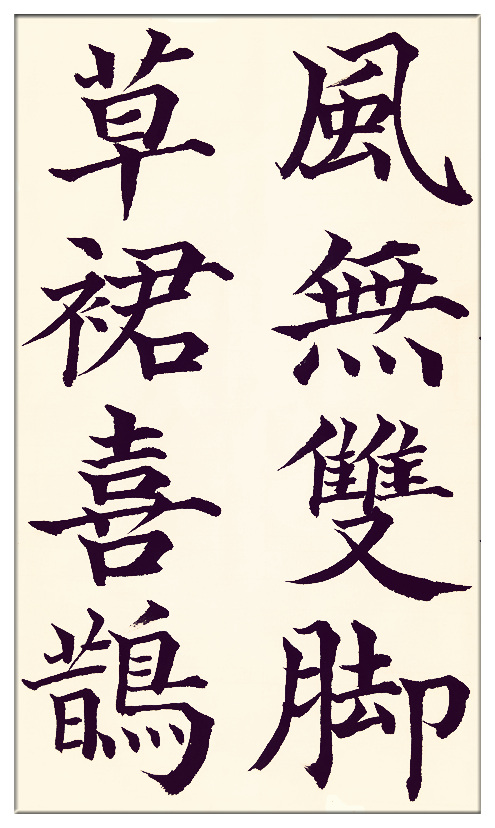 風無雙脚
草裙喜鵲